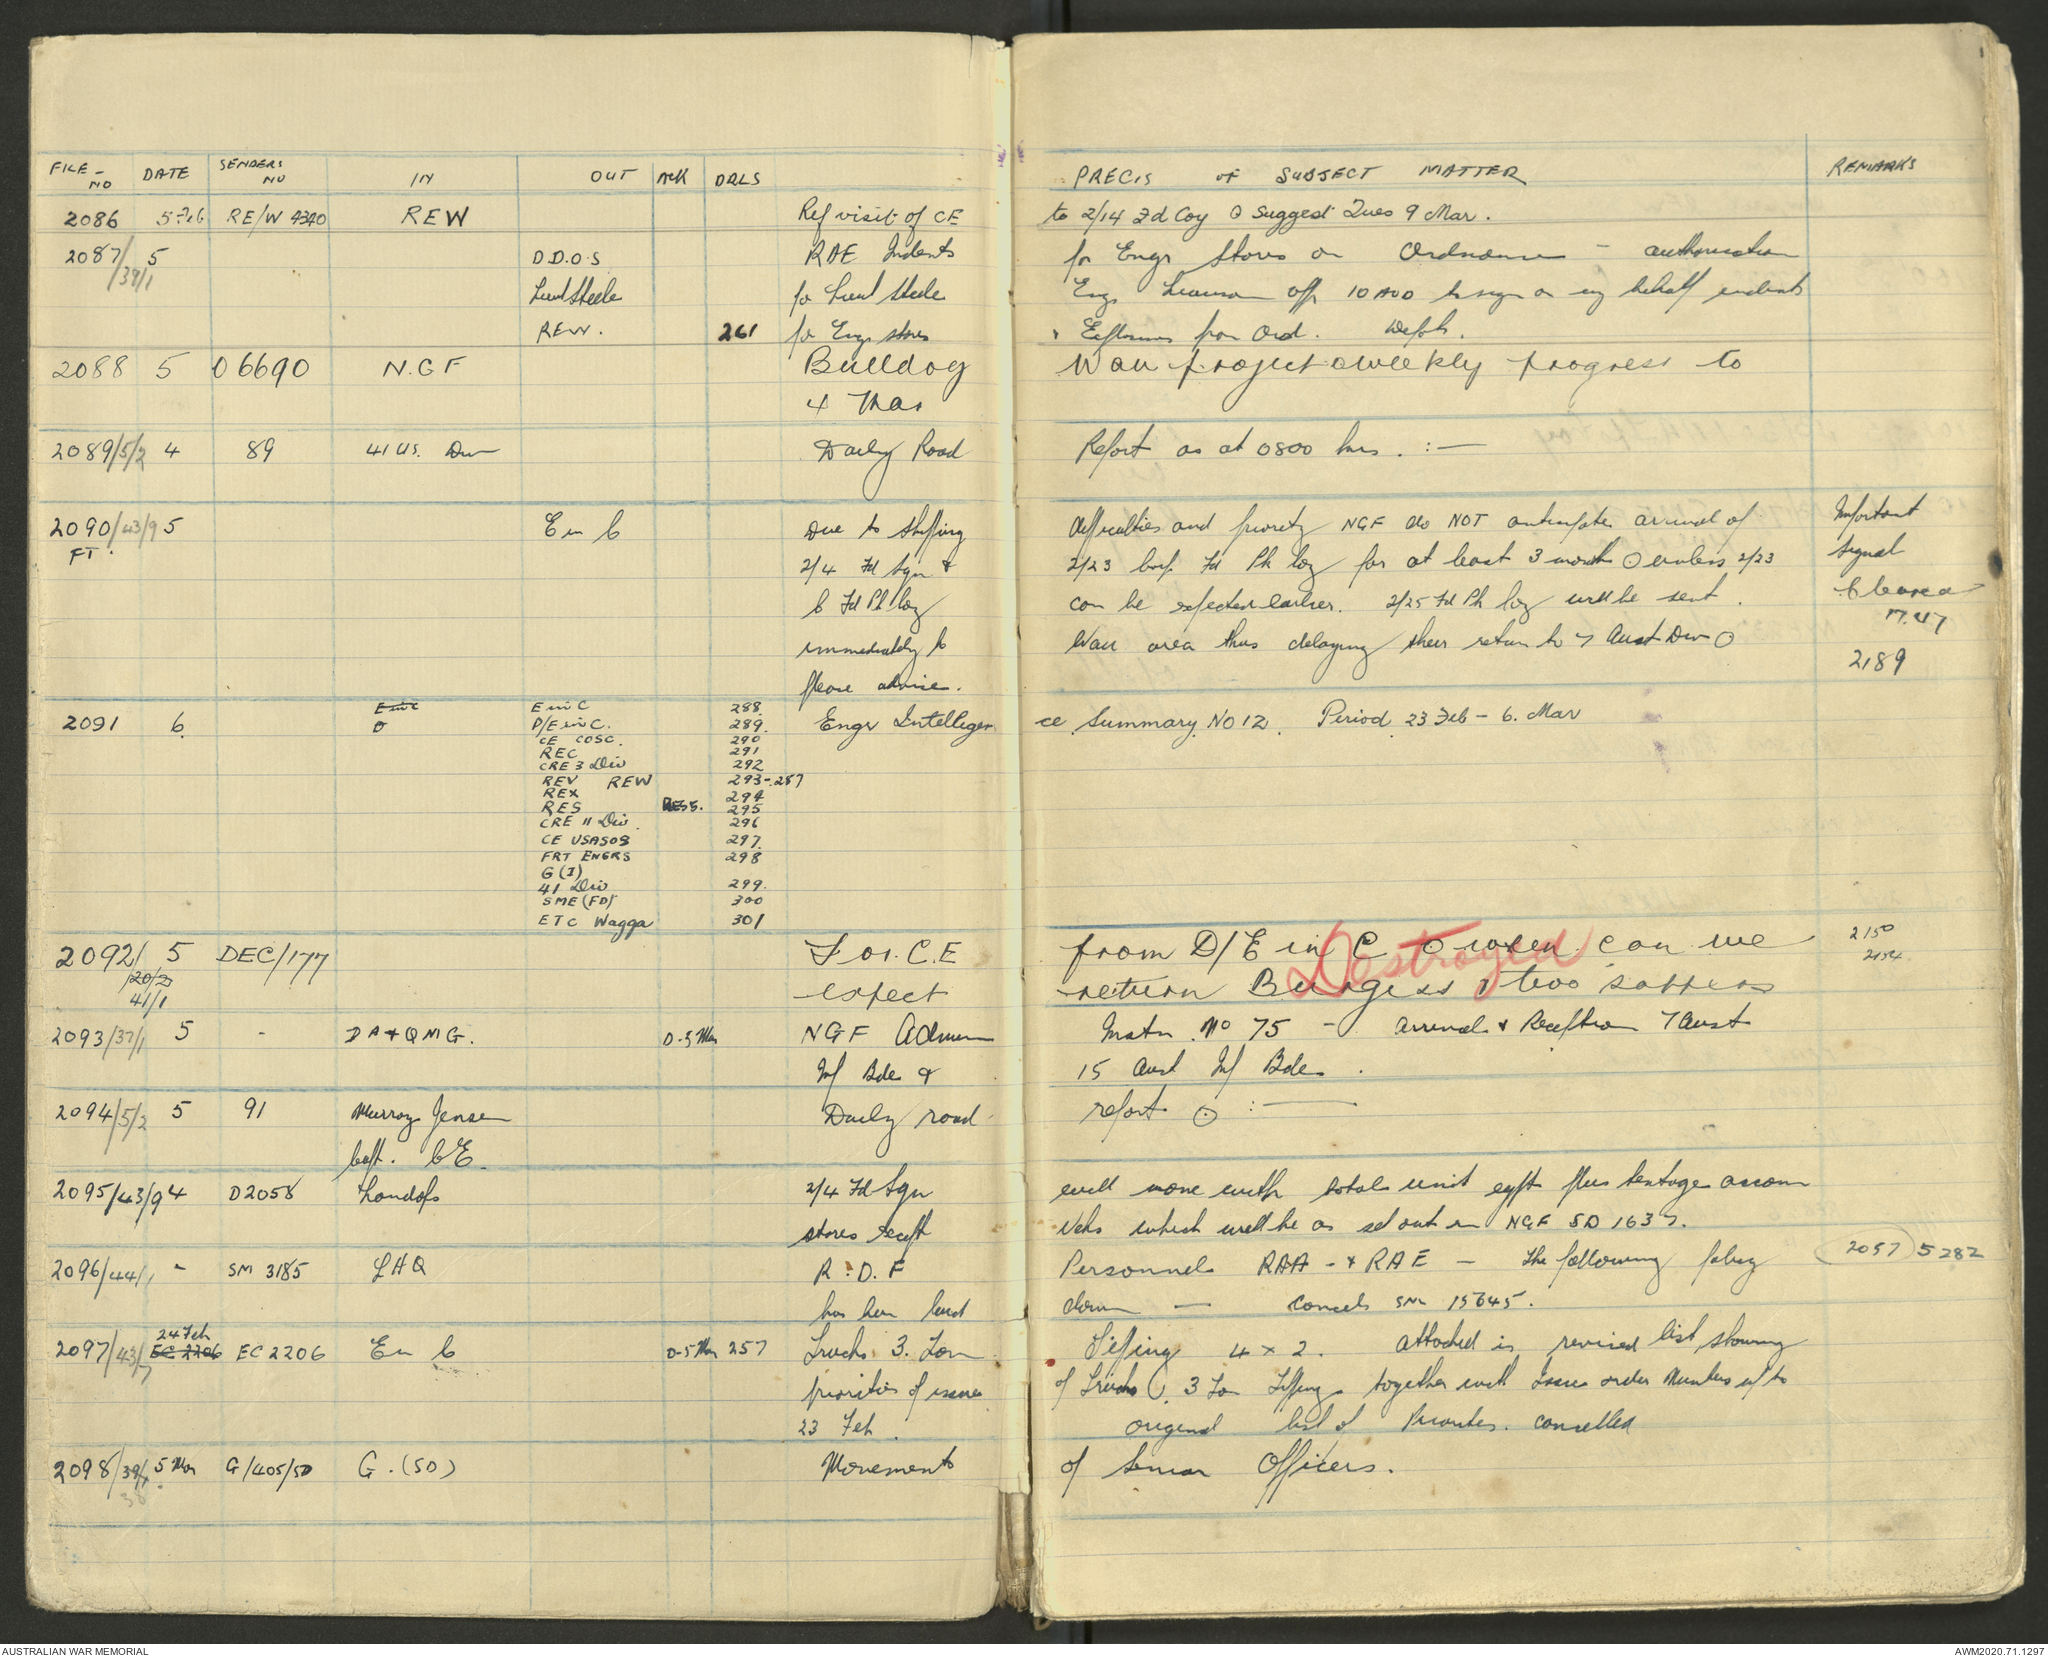 FILE - NO DATE SENDERS NO IN OUT Ack DRLS PRECIS OF SUBJECT MATTER REMARKS
2086 5 Feb RE/W 4340 REW Ref visit of CE to 2/14 Fd Coy O Suggest Tues 9 Mar.
2087/39/1 5 D.D.O.S RAE Indents for Engr Stores on Ordnance - authorisation
Lieut Steele for Lieut Steele Engr offr 10 AOD to sign on my behalf indents
REW. 261 for Engr stores Explosives from Ord.
2088 5 06690 N.G.F Bulldog Wau project O weekly progress to
4 Mar
2089/5/2 4 89 41 U.S. Div Daily Road Report as at 0800 hrs. :-
2090/43/9 5 E in C Due to shipping difficulties and priority NGF do NOT anticipate arrival of Important
FT. 2/4 Fd Sqn & 2/23 Fd Pk Coy for at least 3 months O unless 2/23 signal
6 Fd Pk Coy can be expected earlier. 2/25 Fd Pk Coy will be sent.
immediately to Wau area thus delaying their return to 7 Aust Div O
please advise. 2189
2091 6 E in C E in C 288 Engr Intelligence Summary No 12. Period 23 Feb - 6. Mar
D/E in C. 289.
CE COSC. 290
REC 291
CRE 3 Div 292
REV REW 293-287
REX 294
RES 295
CRE 11 Div. 296
CE USASOS 297.
FRT ENGRS 298
G (I)
41 Div 299.
SME (FD) 300
ETC Wagga 301
2092/20/2 5 DEC/177 For. C.E from D/E in C O when can we 2150
41/1 expect return Burgess & two sappers 2154
Destroyed
2093/37/1 5 - DA & QMG. D-5 Mar NGF Admin Instn. No 75 - arrival & Reception 7 Aust
Inf Bde & 15 Aust Inf Bde.
2094/5/2 5 91 Murray Jensen Daily road report O :-
Capt. CE.
2095/43/9 4 D2058 Landops 2/4 Fd Sqn will move with total unit eqpt plus tentage accom
stores except vehs which will be as set out in NGF SD 1637.
2096/44/1 - SM 3185 LHQ R.D.F Personnel RAA - & RAE - The following policy 2097 5282
has been laid down - cancels SM 15645.
2097/43/7 24 Feb EC 2206 EC 2206 E in C D-5 Mar 257 Trucks 3. Ton Tipping 4 x 2. Attached is revised list showing
priorities of issue of Trucks 3 Ton Tipping together with Issue order Numbers
23 Feb. original list of Priorities. cancelled
2098/39/1 5 Mar G/405/SD G. (SD) Movements of Senior Officers.
38
AUSTRALIAN WAR MEMORIAL AWM2020.71.1297